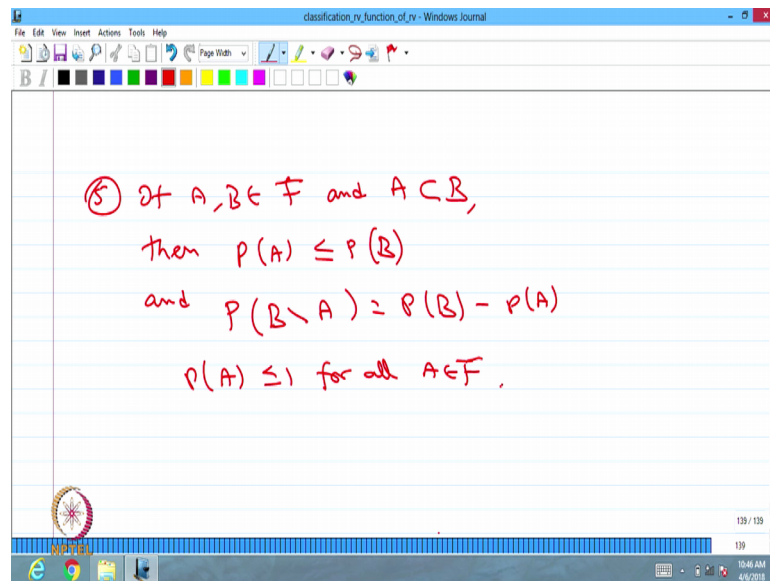 classification_rv_function_of_rv - Windows Journal
File Edit View Insert Actions Tools Help
Page Width
B I
⑤ If A, B ∈ F and A ⊂ B,
then P(A) ≤ P(B)
and P(B \ A) = P(B) - P(A)
P(A) ≤ 1 for all A ∈ F.
139 / 139
NPTEL
139
10:46 AM
4/6/2018